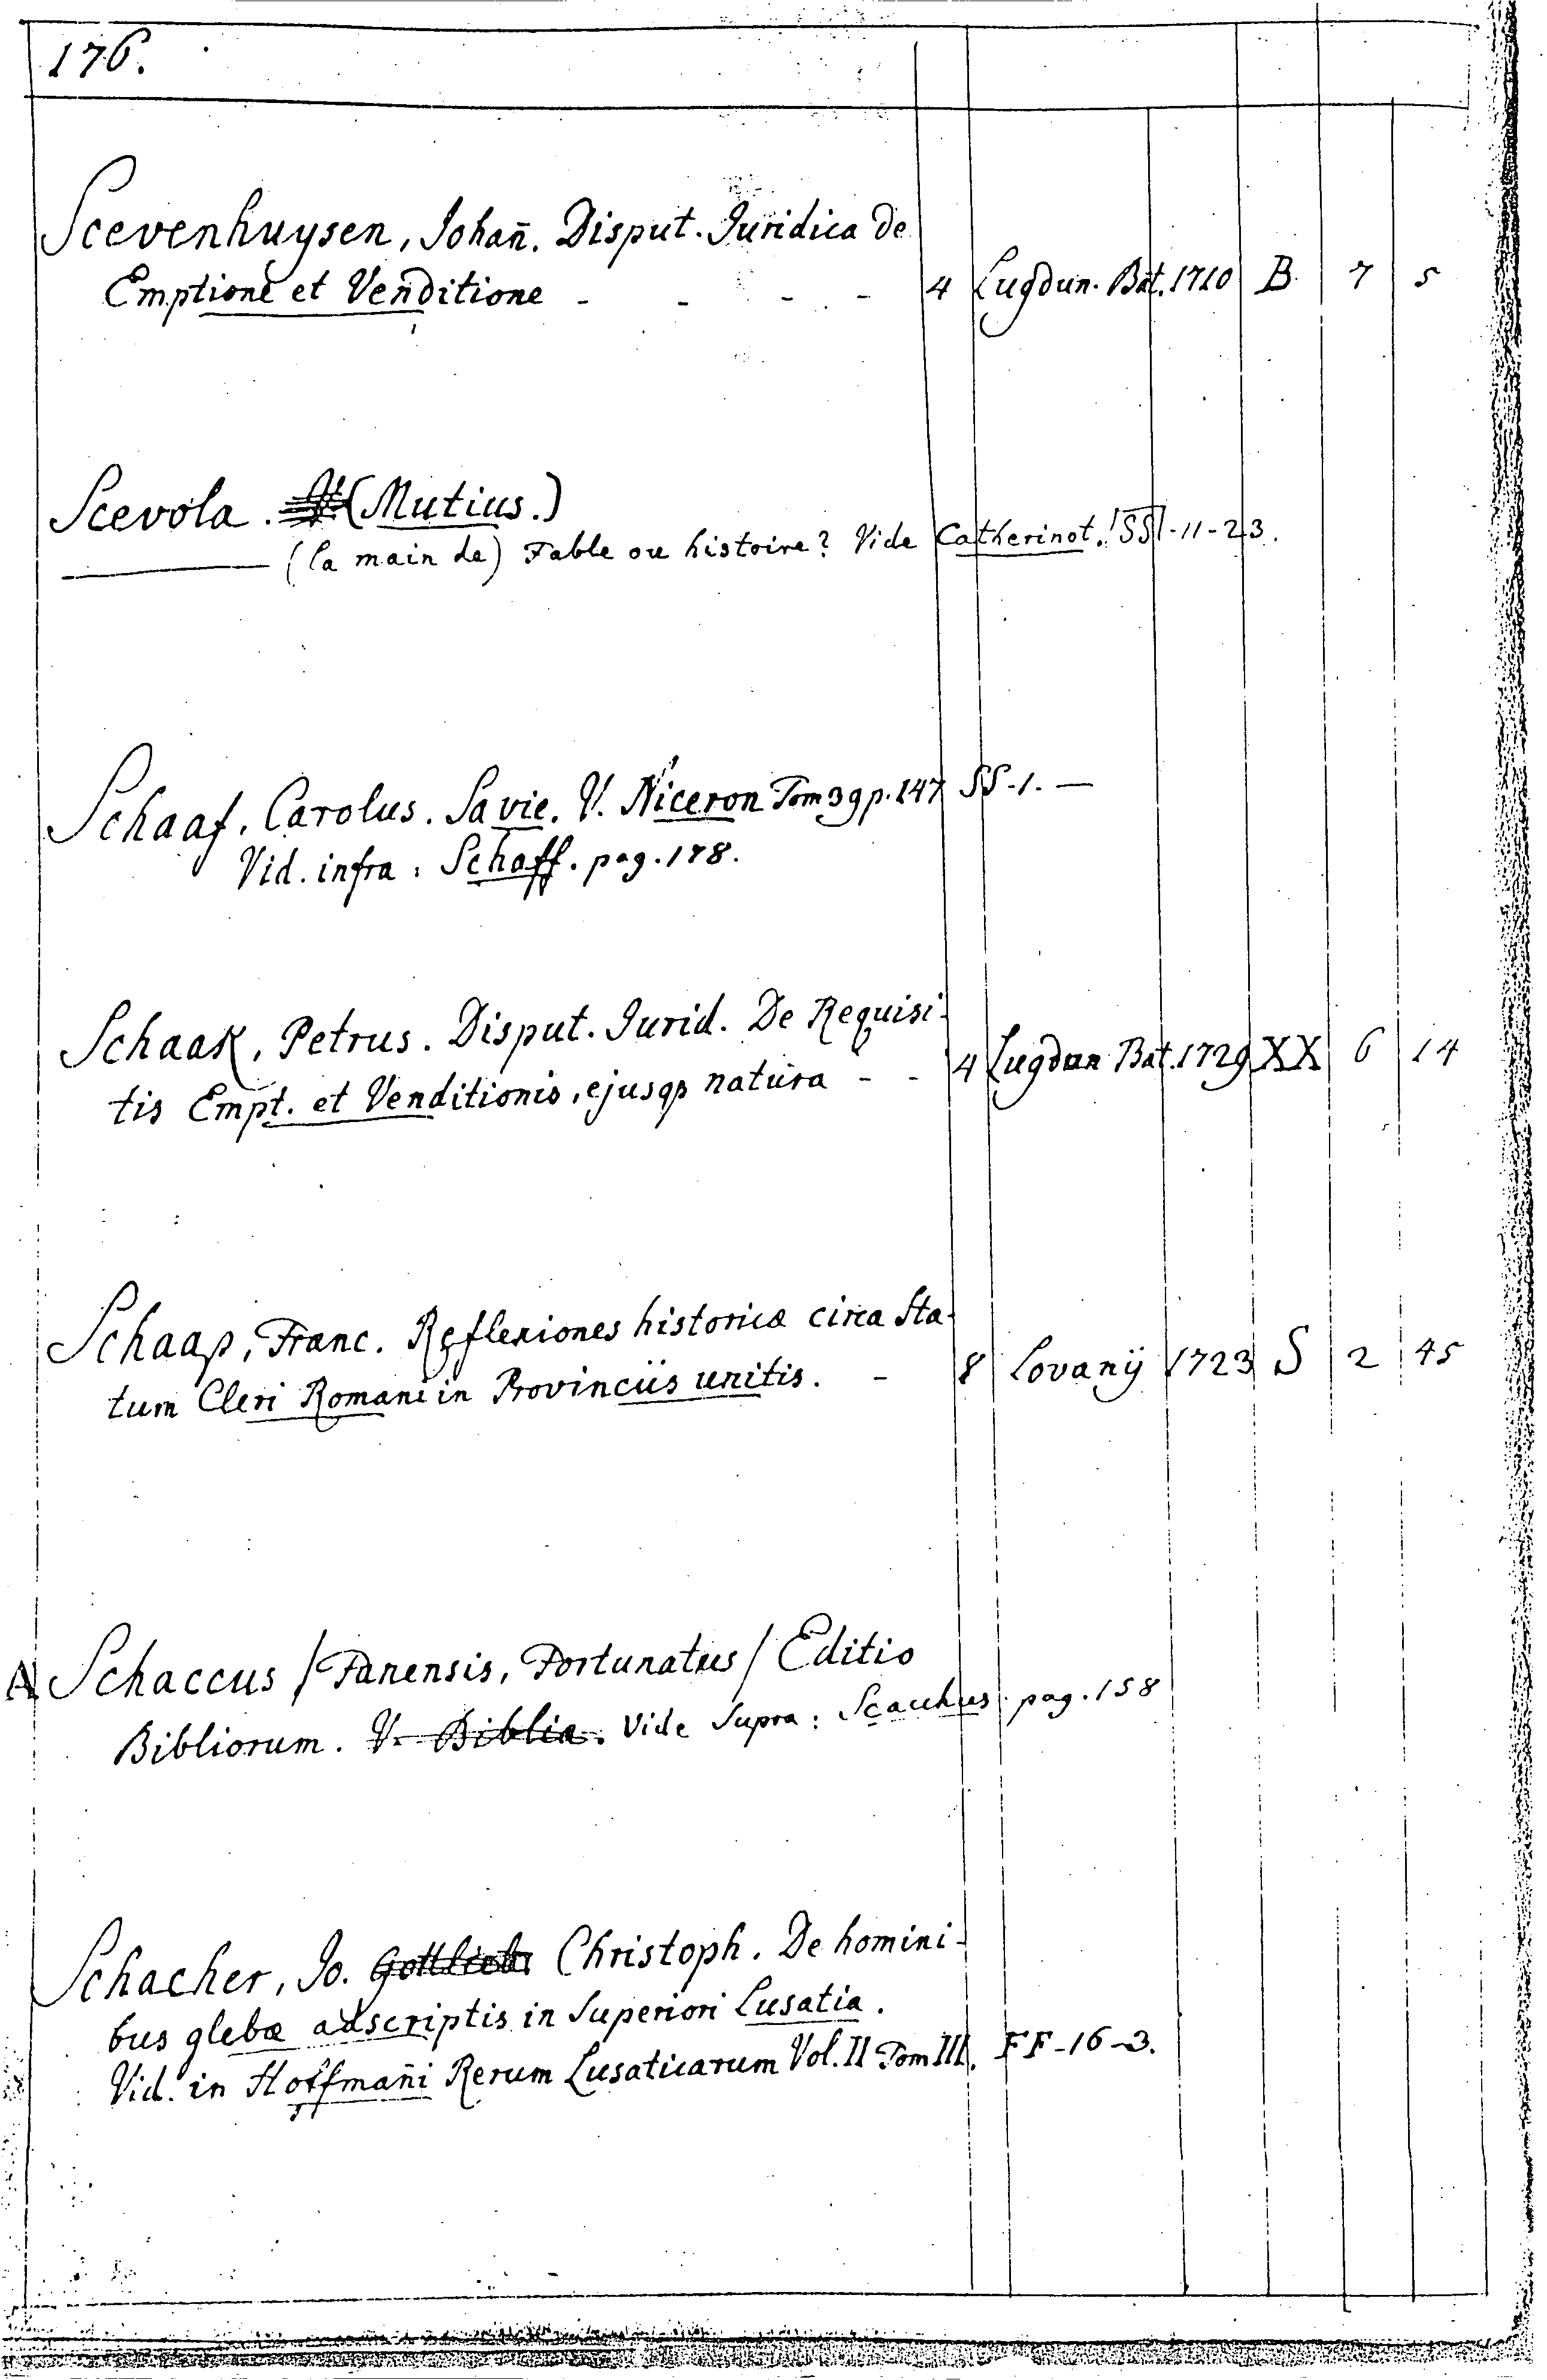 176.
Scevenhuysen, Johan̄. Disput. Juridica de
Emptione et Venditione - - - - 4 Lugdun. Bat. 1710 B 7 5
Scevola. (Mutius.)
——— (la main de) Fable ou histoire? Vide Catherinot. SS-11-23.
Schaaf, Carolus. Sa vie. V. Niceron Tom 39 p. 147 SS-1. —
Vid. infra: Schaff. pag. 178.
Schaak, Petrus. Disput. Jurid. De Requisi-
tis Empt. et Venditionis, ejusqs natura - - 4 Lugdun Bat. 1729 XX 6 14
Schaap, Franc. Reflexiones historicæ circa Sta-
tum Cleri Romani in Provinciis unitis. - 8 Lovanij 1723 S 2 45
A Schaccus / Fanensis, Fortunatus / Editio
Bibliorum. V. Biblia. Vide Supra: Scacchus. pag. 158
Schacher, Jo. Gottlieb Christoph. De homini-
bus glebæ adscriptis in Superiori Lusatia.
Vid. in Hoffman̄i Rerum Lusaticarum Vol. II Tom III. FF-16-3.